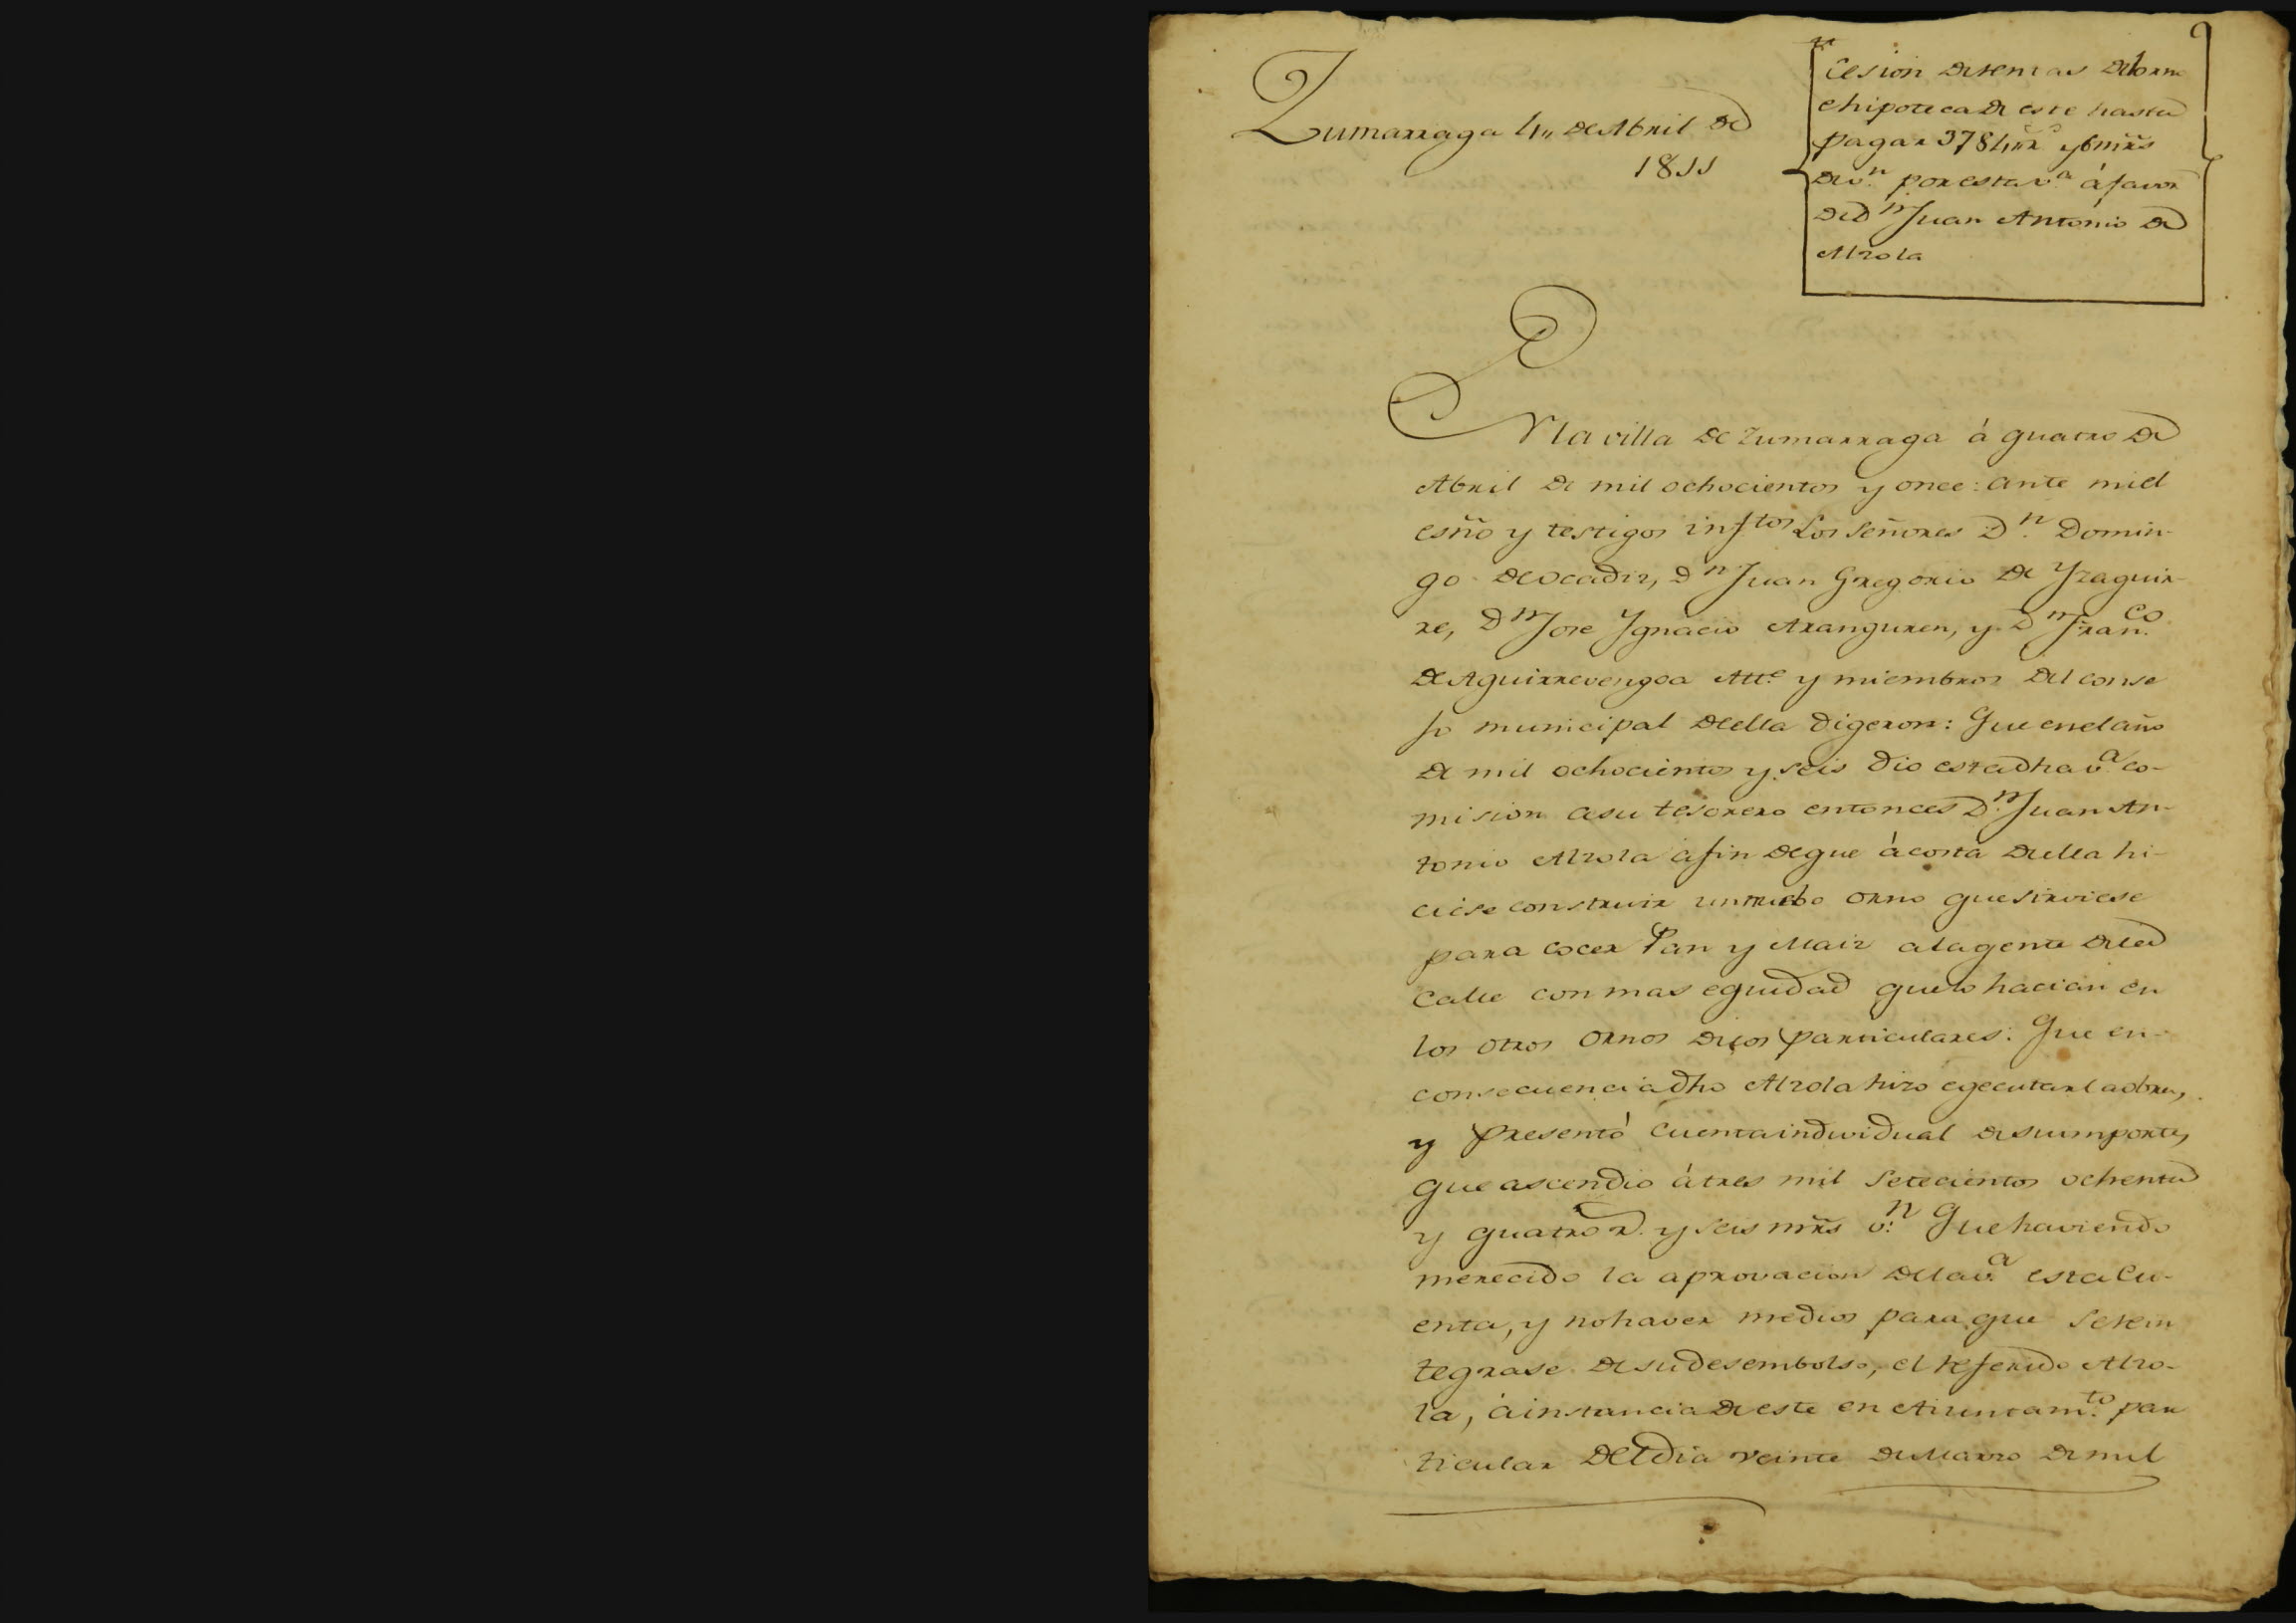 Zumarraga 4,, de Abril de
1811
Cesion de rentas del orno
e hipoteca de este hasta
pagar 3784,, rs y 6 mrs
de vn. por esta va. á favor
de dn Juan Antonio de
Alzola
En la villa de Zumarraga à quatro de
Abril de mil ochocientos y once: ante mi el
esño y testigos inftos Los Señores Dn. Domin-
go de Ocadiz, Dn Juan Gregorio de Yzaguir-
re, Dn Jose Ygnacio Aranguren, y Dn Franco.
de Aguirrevengoa Alle. y miembros del conse
jo municipal de ella digeron: Que en el año
de mil ochocientos y seis dio esta dha va. co-
mision a su tesorero entonces Dn. Juan An-
tonio Alzola à fin de que à costa de ella hi-
ciese construir un nuebo orno que sirviese
para cocer Pan y Maiz a la gente de la
Calle con mas equidad que lo hacian en
los otros ornos de los particulares: Que en
consecuencia dho Alzola hizo egecutar la obra,
y presentó cuenta individual de su importe,
que ascendio à tres mil setecientos ochenta
y quatro rs. y seis mrs vn: Que haviendo
merecido la aprovacion de la va. esta cu-
enta, y no haver medios para que se rein
tegrase de su desembolso, el referido Alzo-
la, à instancia de este en Aiuntamto. par
ticular del dia veinte de Marzo de mil